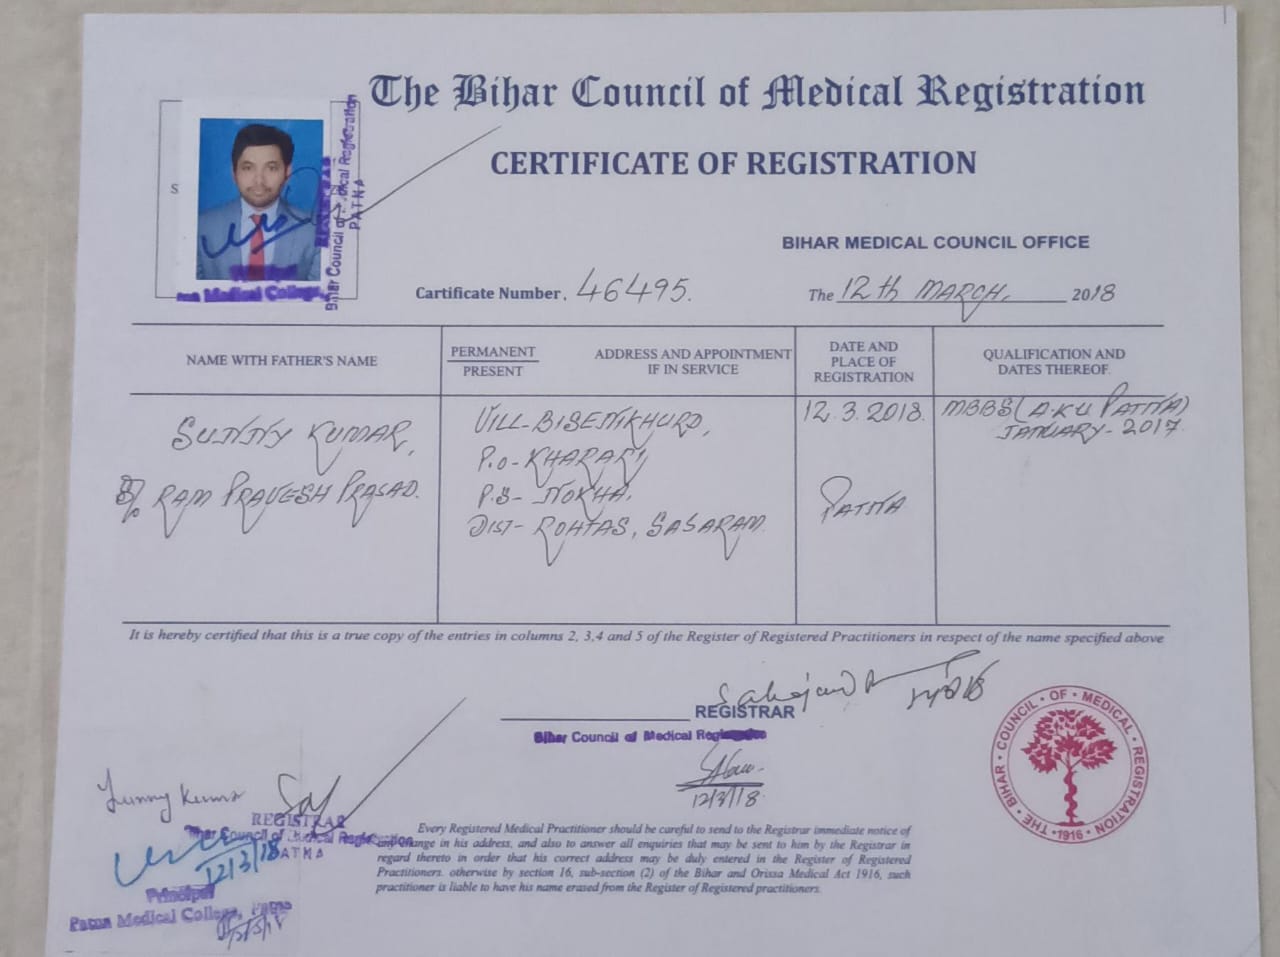 The Bihar Council of Medical Registration
CERTIFICATE OF REGISTRATION
S
REGISTRAR
Bihar Council of Medical Registration
PATNA
Principal
Patna Medical College,
BIHAR MEDICAL COUNCIL OFFICE
Certificate Number. 46495.
The 12th MARCH, 2018
NAME WITH FATHER'S NAME
PERMANENT
PRESENT
ADDRESS AND APPOINTMENT
IF IN SERVICE
DATE AND
PLACE OF
REGISTRATION
QUALIFICATION AND
DATES THEREOF.
SUNNY KUMAR,
S/o RAM PRAVESH PRASAD.
VILL-BISENIKHURD,
P.O-KHARARI,
P.S- NOKHA,
DIST- ROHTAS, SASARAM.
12.3.2018.
PATNA
MBBS(A.K.U PATNA)
JANUARY-2017.
It is hereby certified that this is a true copy of the entries in columns 2, 3,4 and 5 of the Register of Registered Practitioners in respect of the name specified above
REGISTRAR
Bihar Council of Medical Registration
12/3/18
THE · BIHAR · COUNCIL · OF · MEDICAL · REGISTRATION
1916
Sunny Kumar
REGISTRAR
Bihar Council of Medical Registration
PATNA
12/3/18
Principal
Patna Medical College, Patna
Every Registered Medical Practitioner should be careful to send to the Registrar immediate notice of
any change in his address, and also to answer all enquiries that may be sent to him by the Registrar in
regard thereto in order that his correct address may be duly entered in the Register of Registered
Practitioners. otherwise by section 16, sub-section (2) of the Bihar and Orissa Medical Act 1916, such
practitioner is liable to have his name erased from the Register of Registered practitioners.